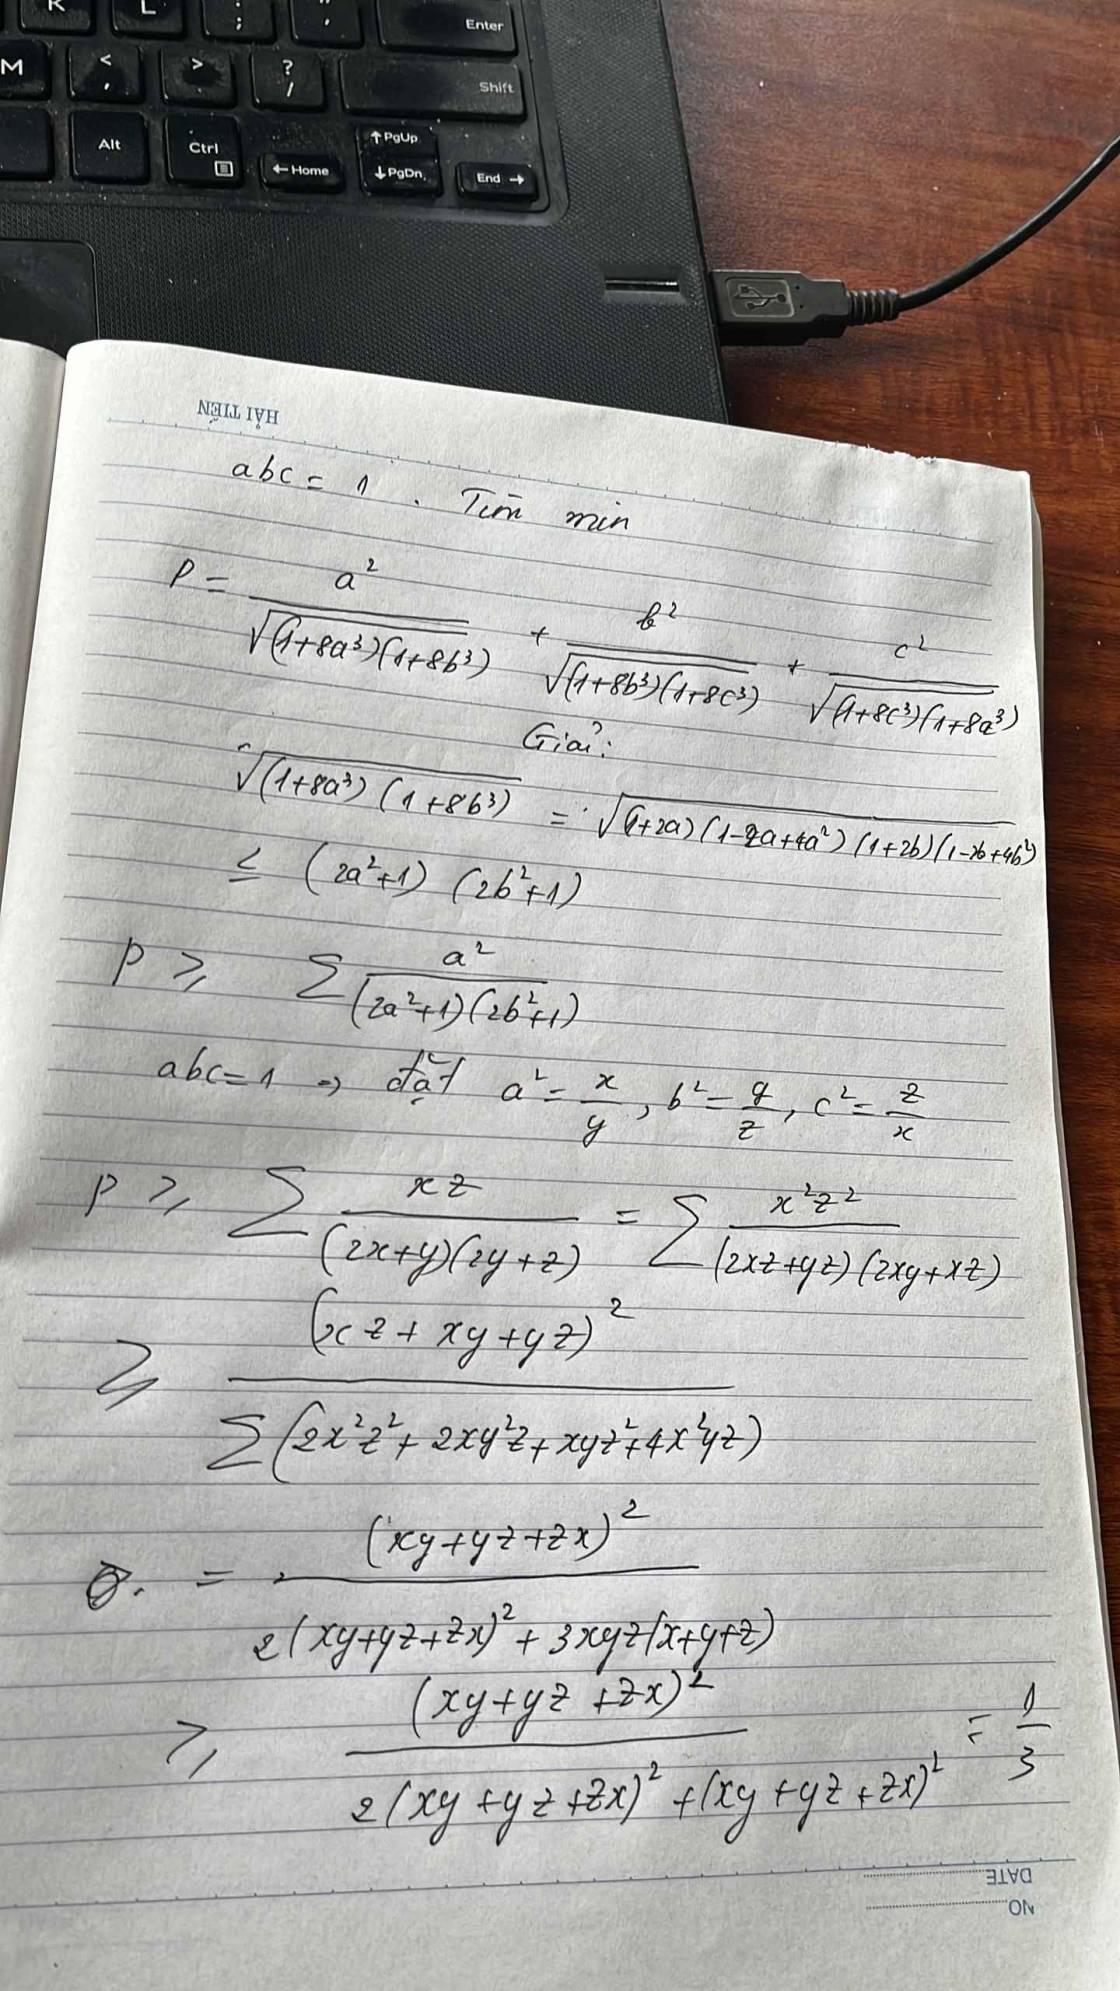 K L : ; " ' Enter
M < , > . ? / Shift
Alt Ctrl ↑ PgUp
← Home ↓ PgDn End →
HẢI TIẾN
abc = 1 . Tìm min
P = a²/√((1+8a³)(1+8b³)) + b²/√((1+8b³)(1+8c³)) + c²/√((1+8c³)(1+8a³))
Giải:
√((1+8a³)(1+8b³)) = √((1+2a)(1-2a+4a²)(1+2b)(1-2b+4b²))
≤ (2a²+1)(2b²+1)
P ≥ Σ a²/((2a²+1)(2b²+1))
abc=1 → đặt a² = x/y, b² = y/z, c² = z/x
P ≥ Σ xz/((2x+y)(2y+z)) = Σ x²z²/((2xz+yz)(2xy+xz))
≥ (xz+xy+yz)²/Σ(2x²z²+2xy²z+xyz²+4x²yz)
= (xy+yz+zx)²/(2(xy+yz+zx)²+3xyz(x+y+z))
≥ (xy+yz+zx)²/(2(xy+yz+zx)²+(xy+yz+zx)²) = 1/3
DATE
NO